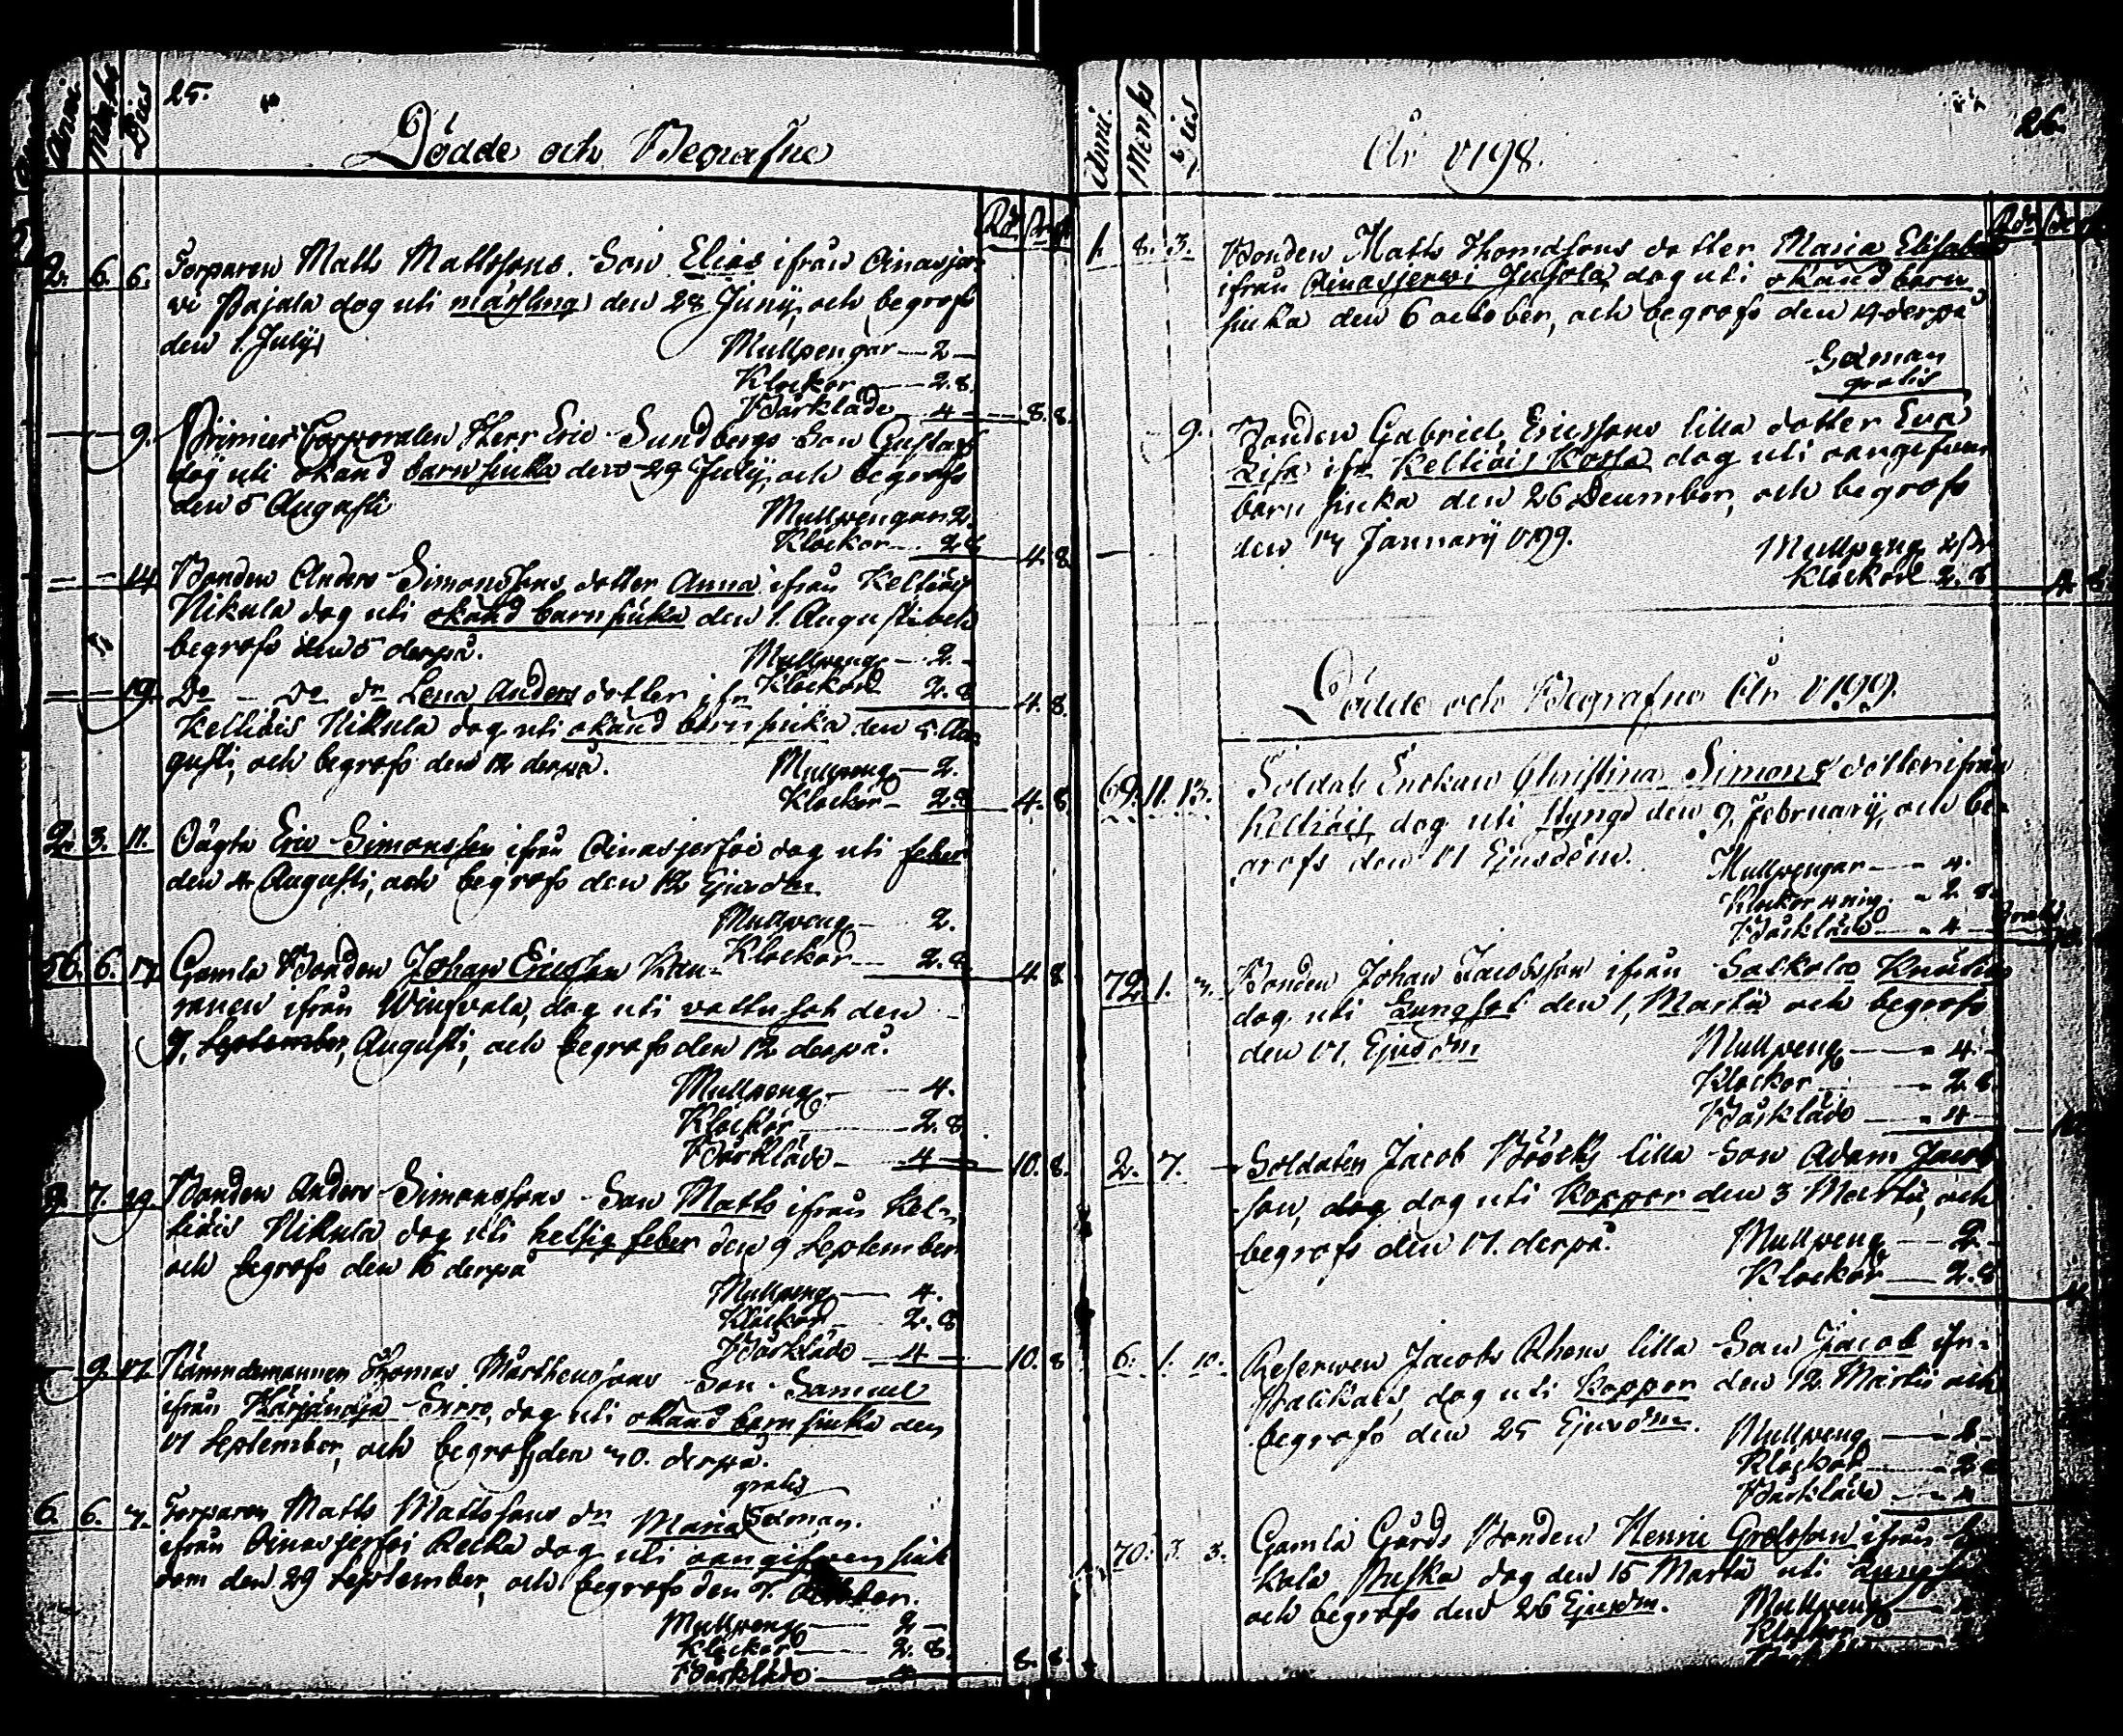 Anni. Menses Dies
25.
Dödde och Begrafne
Rd. sk. r.
2. 6. 6. Torparen Matts Mattssons Son Elias ifrån Ainasjer-
vi Pajala dog uti mässling den 28 Junij, och begrofs
den 1. Julij
Mullpengar — 2 —
Klockor — 2. 8.
Bårkläde — 4 — 8. 8.
— — 9. Herr Eric Sundbergs Son Gustaf
dog uti okänd barnsiuka den 29 Julij, och begrofs
den 5 Augusti
Mullpengar 2.
Klockor — 2 8 4. 8
— — 14. Bonden Anders Simonssons dotter Anna ifrån Keltiäis
Nikula dog uti okänd barnsiuka den 1. Augusti och
begrofs den 5 derpå.
Mullpeng — 2. —
Klockor 2. 8 4. 8.
— — 19. Do — Do dr Lena Anders dotter ifr.
Keltiäis Nikula dog uti okänd barnsiuka den 5. Au-
gusti, och begrofs den 12 derpå.
Mullpeng — 2.
Klockor — 2. 8 4. 8
2. 3. 11. Eric Simonsson ifrån Ainasjerfvi dog uti feber
den 4 Augusti, och begrofs den 12 Ejusdm
Mullpeng — 2.
Klockor — 2. 8 4. 8
56. 6. 17. Gamla Bonden Johan Ericsson
ifrån dog uti vattusot den
7. September, Augusti, och begrofs den 12 derpå.
Mullpeng — 4.
Klockor — 2. 8
Bårkläde — 4 — 10. 8.
9. 7. 29. Bonden Anders Simonssons Son Matts ifrån Kel-
tiäis Nikula dog uti hetsig feber den 9 September
och begrofs den 16 derpå
Mullpeng — 4.
Klockor — 2. 8
Bårkläde — 4 — 10. 8
— 9. 17. Nämndemannen Thomas Mårthenssons Son Samuel
ifrån dog uti okänd barnsiuka den
17 September, och begrofs den 30. derpå.
gratis
6. 6. 7. Torparen Matts Mattssons dr Maria
ifrån Ainasjerfvi dog uti oangifven siuk
dom den 29 September, och begrofs den 7. October.
Mullpeng — 2 —
Klockor — 2. 8.
Bårkläde — 4 8. 8.
Anni. Mensis Dies
26.
År 1798.
Rdr sk r
1. 8. 3. Bonden Matts Thomassons dotter Maria Elisabet
ifrån Ainasjervi Juhola dog uti okänd barn
siuka den 6 october, och begrofs den 14 derpå
gratis
9. Bonden Gabriel Ericssons lilla dotter Eva
Lisa ifr. Keltiäis dog uti oangifven
barn siuka den 26 December, och begrofs
den 17 Januarij 1799.
Mullpeng 2 sk
Klockor 2. 8 4. 8.
Dödde och Begrafne År 1799.
69. 11. 13. Soldats Enckan Christina Simons dotter ifrån
Keltiäis dog uti styng den 9. Februarij, och be-
grofs den 17 Ejusdem.
Mullpengar — 4.
Klockor — 2 8.
Bårkläde — 4 —
72. 1. 7. Bonden Johan Jacobsson ifrån
dog uti Lungsot den 1, Martii och begrofs
den 17. Ejusdm
Mullpeng — 4 —
Klockor — 2 8.
Bårkläde — 4 —
2. 7. — Soldaten Jacob lilla Son Adam Jacob
son, dog dog uti Koppor den 3 Martii, och
begrofs den 17. derpå.
Mullpeng — 2 —
Klockor — 2. 8
6. 1. 10. Reserven Jacob lilla Son Jacob ifr.
dog uti Koppor den 12. Martii och
begrofs den 25 Ejusdm.
Mullpeng
Klockor
Bårkläde
70. 3. 3. Gamla Gårds Bonden Henric ifrån
dog den 15 Martii uti
och begrofs den 26 Ejusdm.
Mullpeng
Klockor